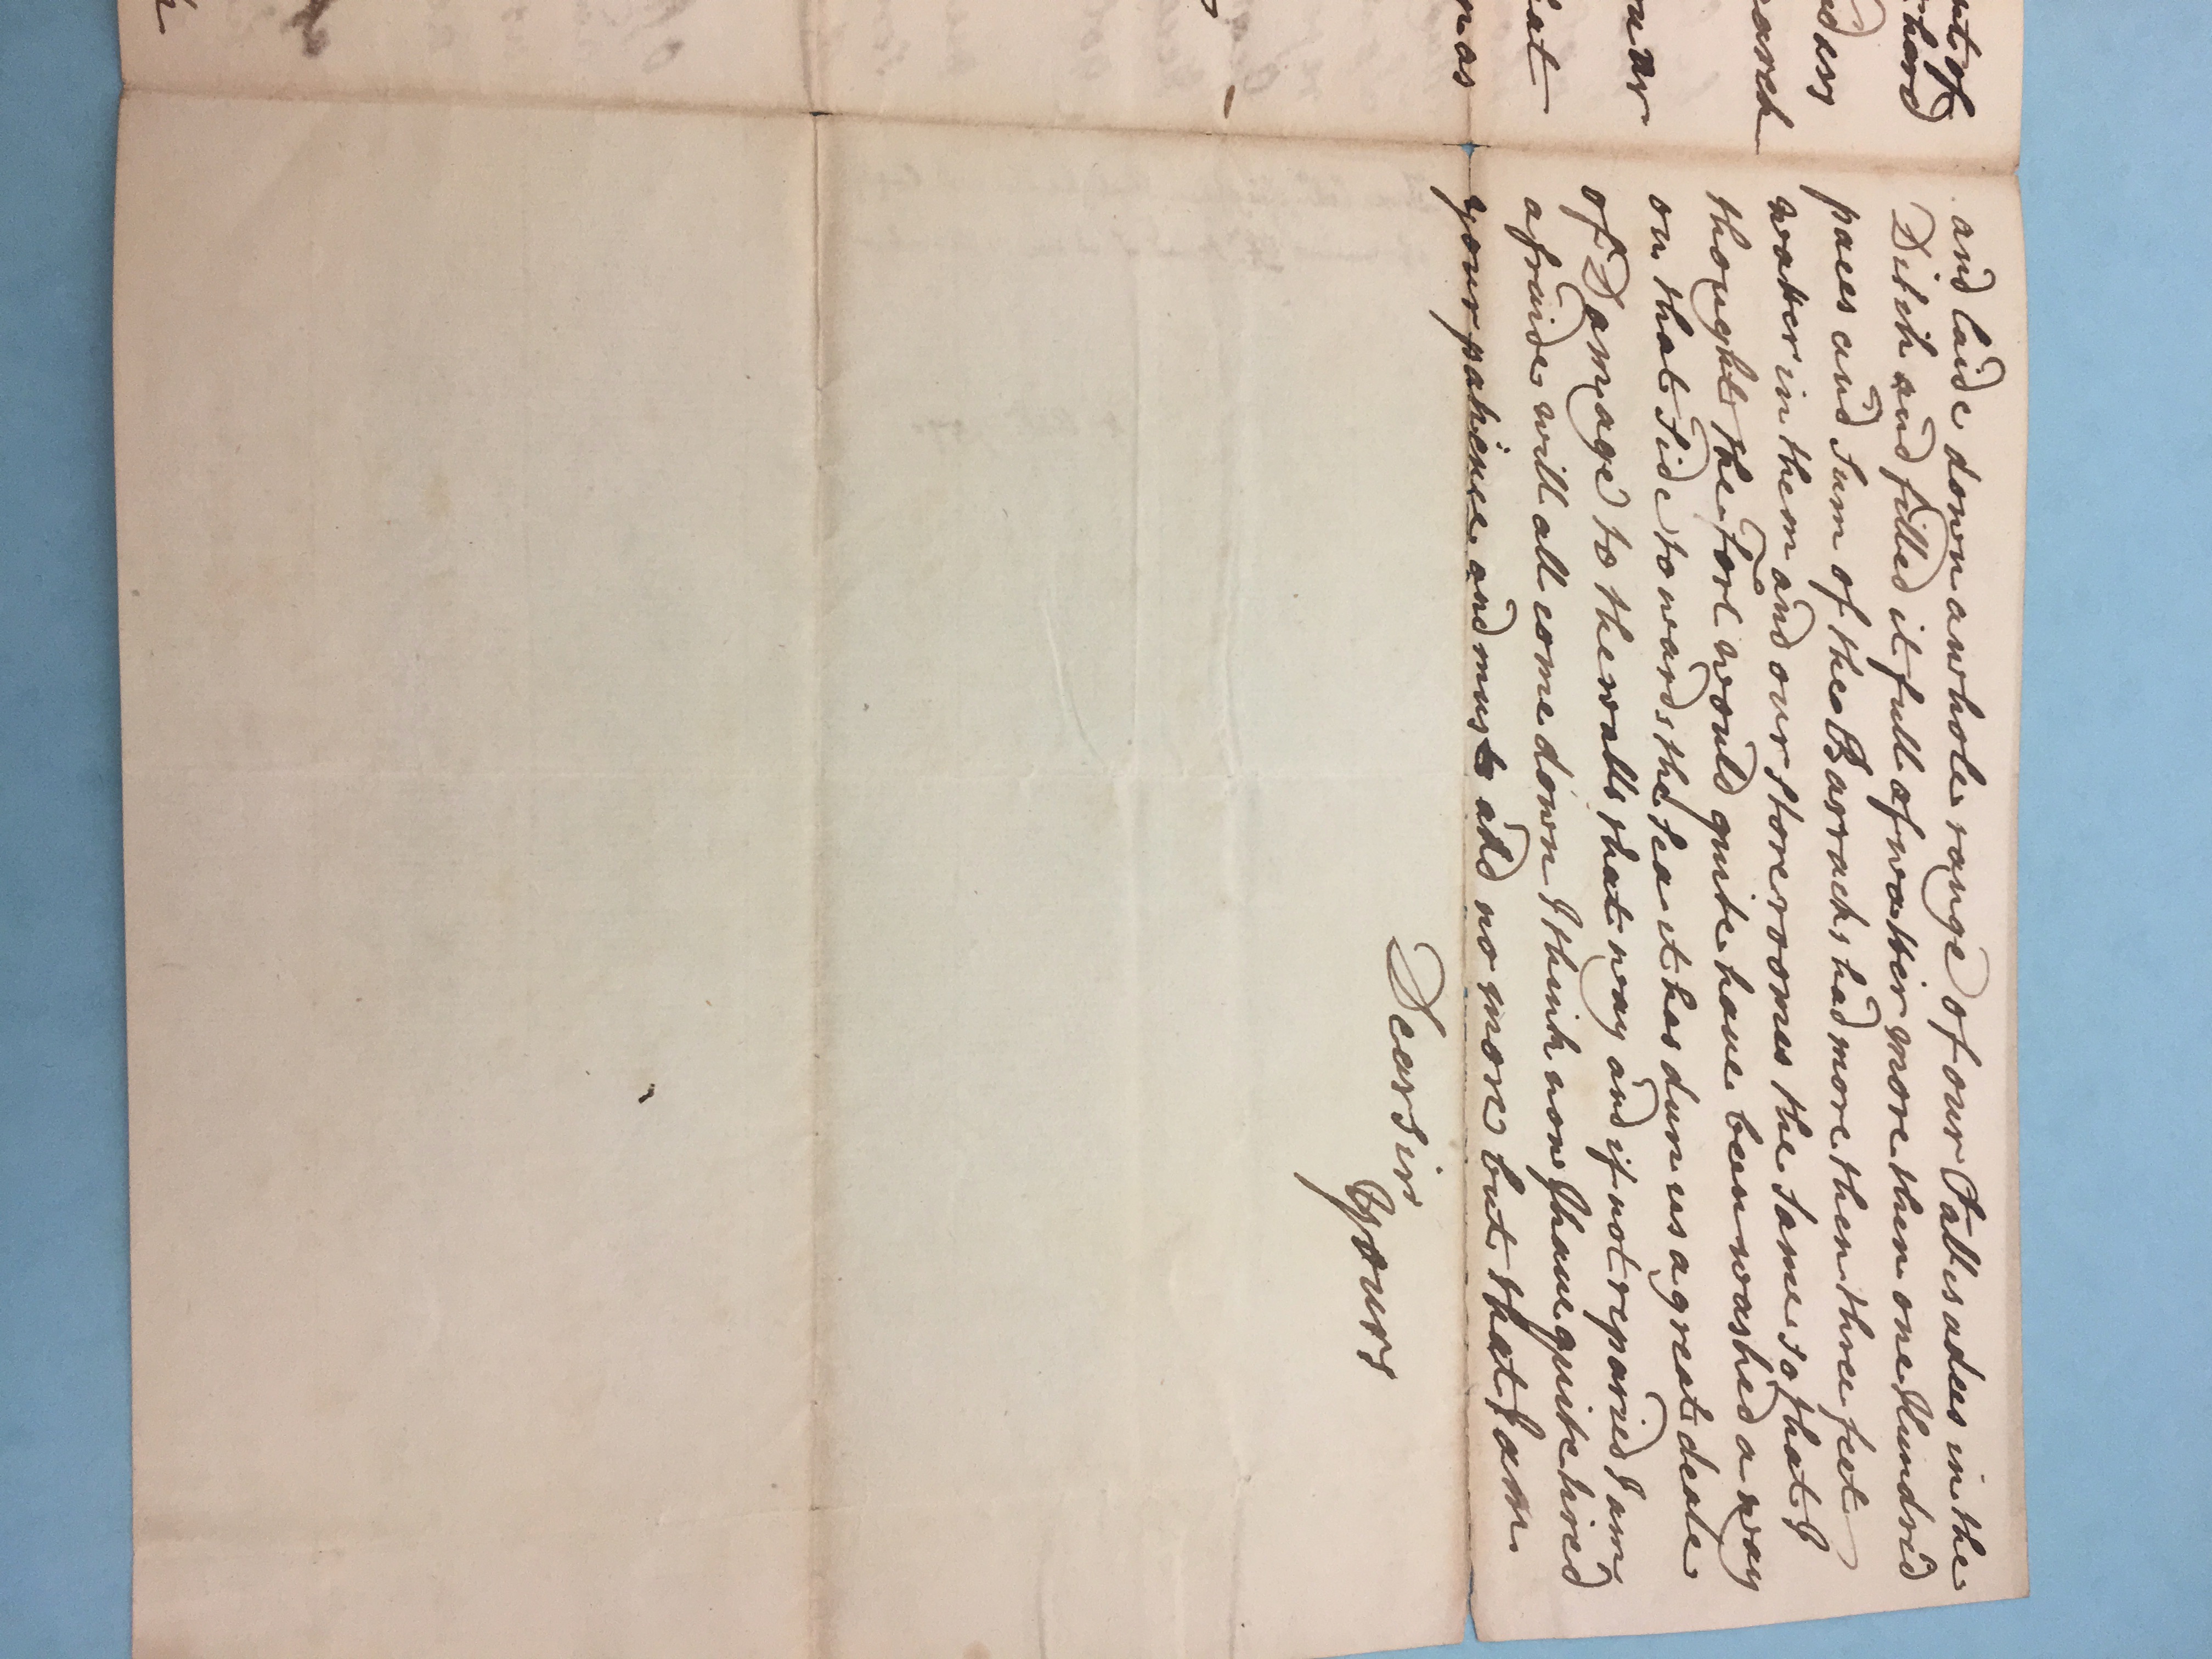 and laide down a whole range of our Pallisadees in the
Ditch and filled it full of watter more then one Hundrid
paces and Sum of the Barracks had more then three feet
watter in them and our store roomes the same so that I
thought the Fort would quite have been washed a way
on that Side towards the Sea it has dun us a great deale
of Damage to the walls that way and if not reparied I am
afraide will all come down I think now I have quite tired
your patience and must add no more but that I am
Dear Sir
Yours